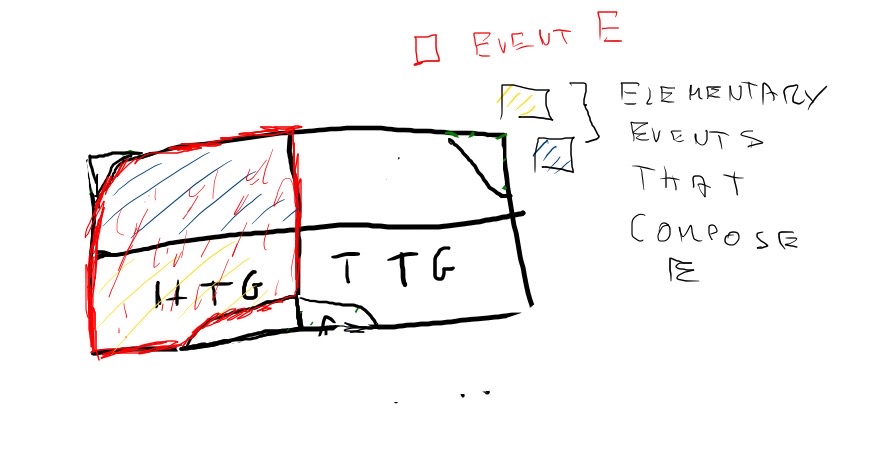 EVENT E
ELEMENTARY
EVENTS
THAT
COMPOSE
E
HTG
TTG